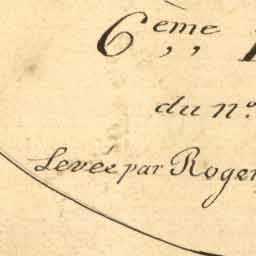 6ème
du no.
Levée par Roger